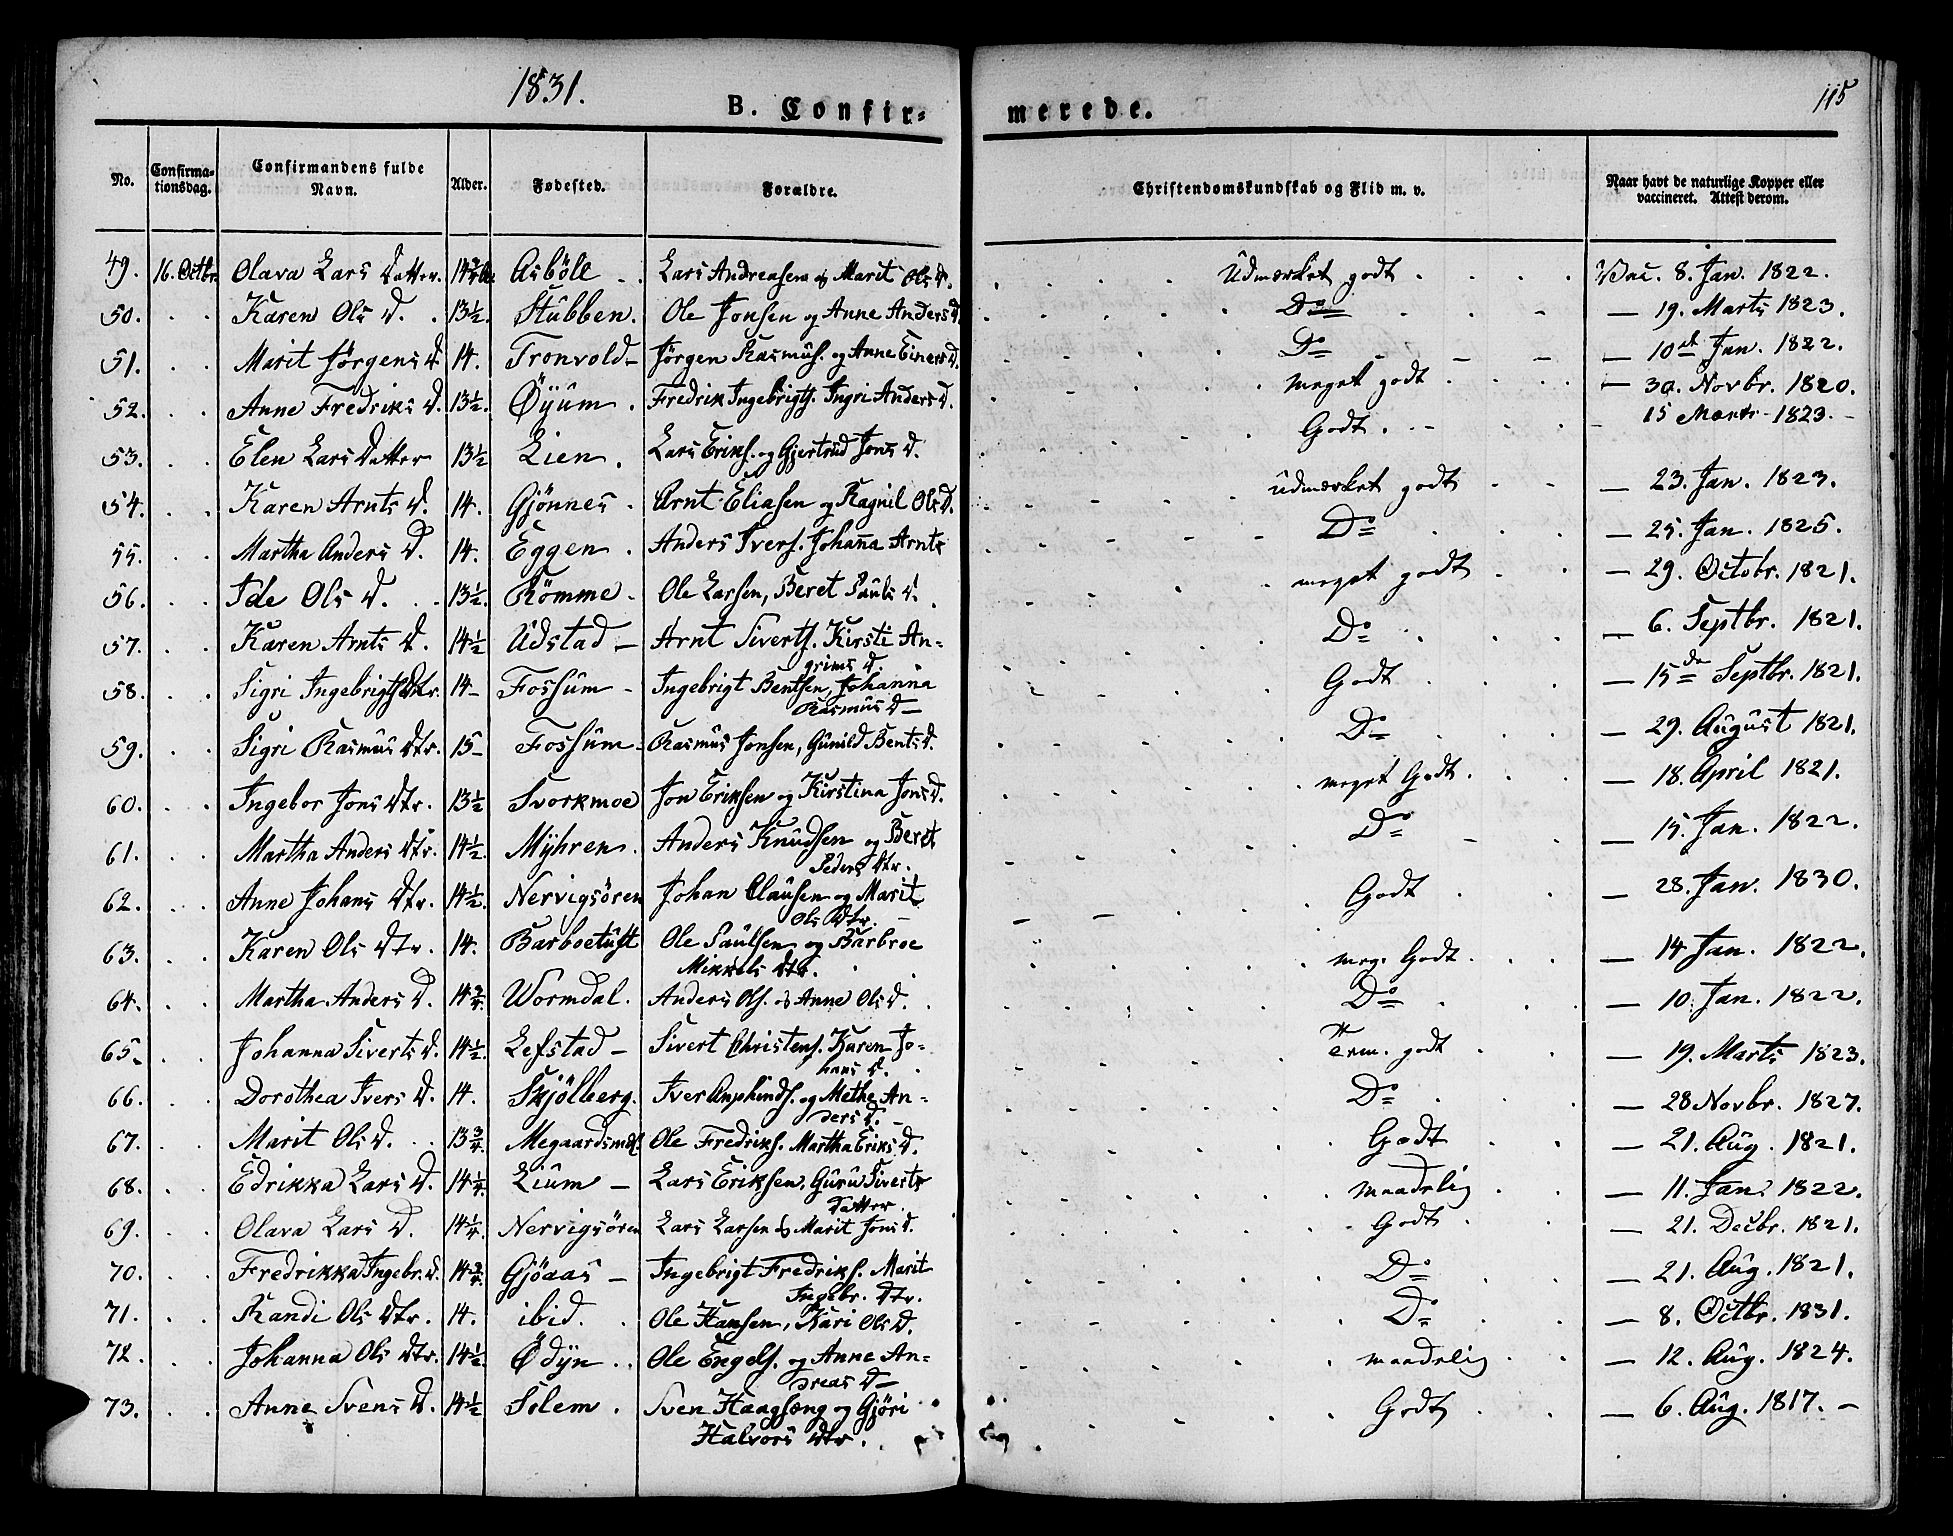 1831.
115
B. Confir-
merede.
No.
Confirma-
tionsdag.
Confirmandens fulde
Navn.
Alder.
Fødested.
Forældre.
Christendomskundskab og Flid m. v.
Naar havt de naturlige Kopper eller
vaccineret. Attest derom.
49. 16. Octbr. Olava Lars Datter. Asböll Lars Andreasen og Marit Ols D. Udmærket godt Vac. 8. Jan. 1822.
50. Karen Ols D. 13½. Stubben. Ole Jonsen og Anne Anders D. Do — 19. Marts 1823.
51. Marit Jörgens D 14. Tronvold Jörgen Rasmus. og Anne Einers D. Do — 10de Jan. 1822.
52. Anne Fredriks D. 13½. Öyum. Fredrik Ingebrigts. Ingri Anders D. meget godt — 30. Novbr. 1820.
53. Elen Lars Datter 13½ Lien. Lars Eriks. og Gjertrud Jons D. Godt. — 15 Marts 1823.
54. Karen Arnts D. 14. Gjönnes Arnt Eliasen og Ragnil Ols D. udmærket godt — 23. Jan. 1823.
55. Martha Anders D. 14. Eggen. Anders Ivers. Johanna Arnts Do — 25. Jan. 1825.
56. Ide Ols D. 13½. Römme. Ole Larsen, Beret Pauls D. meget godt — 29. Octobr. 1821.
57. Karen Arnts D. 14½ Udstad Arnt Siverts. Kirsti An-
grims D. Do — 6. Septbr. 1821.
58. Sigri Ingebrigts Dtr. 14 Fossum Ingebrigt Bentsen, Johanna
Rasmus D Godt — 15de Septbr. 1821.
59. Sigri Rasmus Dtr. 15 Fossum Rasmus Jonsen, Gunild Bents D. Do — 29. August 1821.
60. Ingebor Jons Dtr. 13½ Svorkmoe Jon Eriksen og Kirstina Jons D. meget Godt. — 18. April 1821.
61. Martha Anders Dtr. 14½. Myhren. Anders Knudsen og Beret
Peders Dtr. Do — 15. Jan. 1822.
62. Anne Johans Dtr. 14½. Nervigsören Johan Clausen og Marit
Ols Dtr. Godt — 28. Jan. 1830.
63. Karen Ols Dtr. 14. Barboetuft Ole Paulsen og Barbroe
Mikkels Dtr. meg. Godt. — 14 Jan. 1822.
64. Martha Anders D. 14¾. Wormdal. Anders Ols. og Anne Ols D. Do — 10. Jan. 1822.
65. Johanna Siverts D. 14½. Lefstad Sivert Christens. Karen Jo-
hans D. godt — 19. Marts 1823.
66. Dorothea Ivers D. 14. Skjölberg. Iver Amphinds. og Methe An-
ders D. Do — 28 Novbr. 1827.
67. Marit Ols D. 13¾. Ole Fredriks. Martha Eriks D. Godt — 21. Aug. 1821.
68. Edrikka Lars D. 14¼. Lium Lars Eriksen, Guru Siverts
Datter. maadelig — 11. Jan. 1822.
69. Olava Lars D. 14¼. Nervigsören Lars Larsen og Marit Jons D. Godt — 21. Decbr. 1821.
70. Fredrikka Ingebr. D. 14¾. Gjöaas Ingebrigt Fredriks. Marit
Ingebr. Dtr. Do — 21. Aug. 1821.
71. Randi Ols Dtr. 14. ibid. Ole Hansen, Kari Ols D. Do — 8. Octbr. 1831.
72. Johanna Ols Dtr. 14½. Ödyn Ole Engels. og Anne An-
dreas D maadelig — 12. Aug. 1824.
73. Anne Svens D. 14½ Solem. Sven Haagsæng og Gjöri
Halvors Dtr. Godt — 6. Aug. 1817.